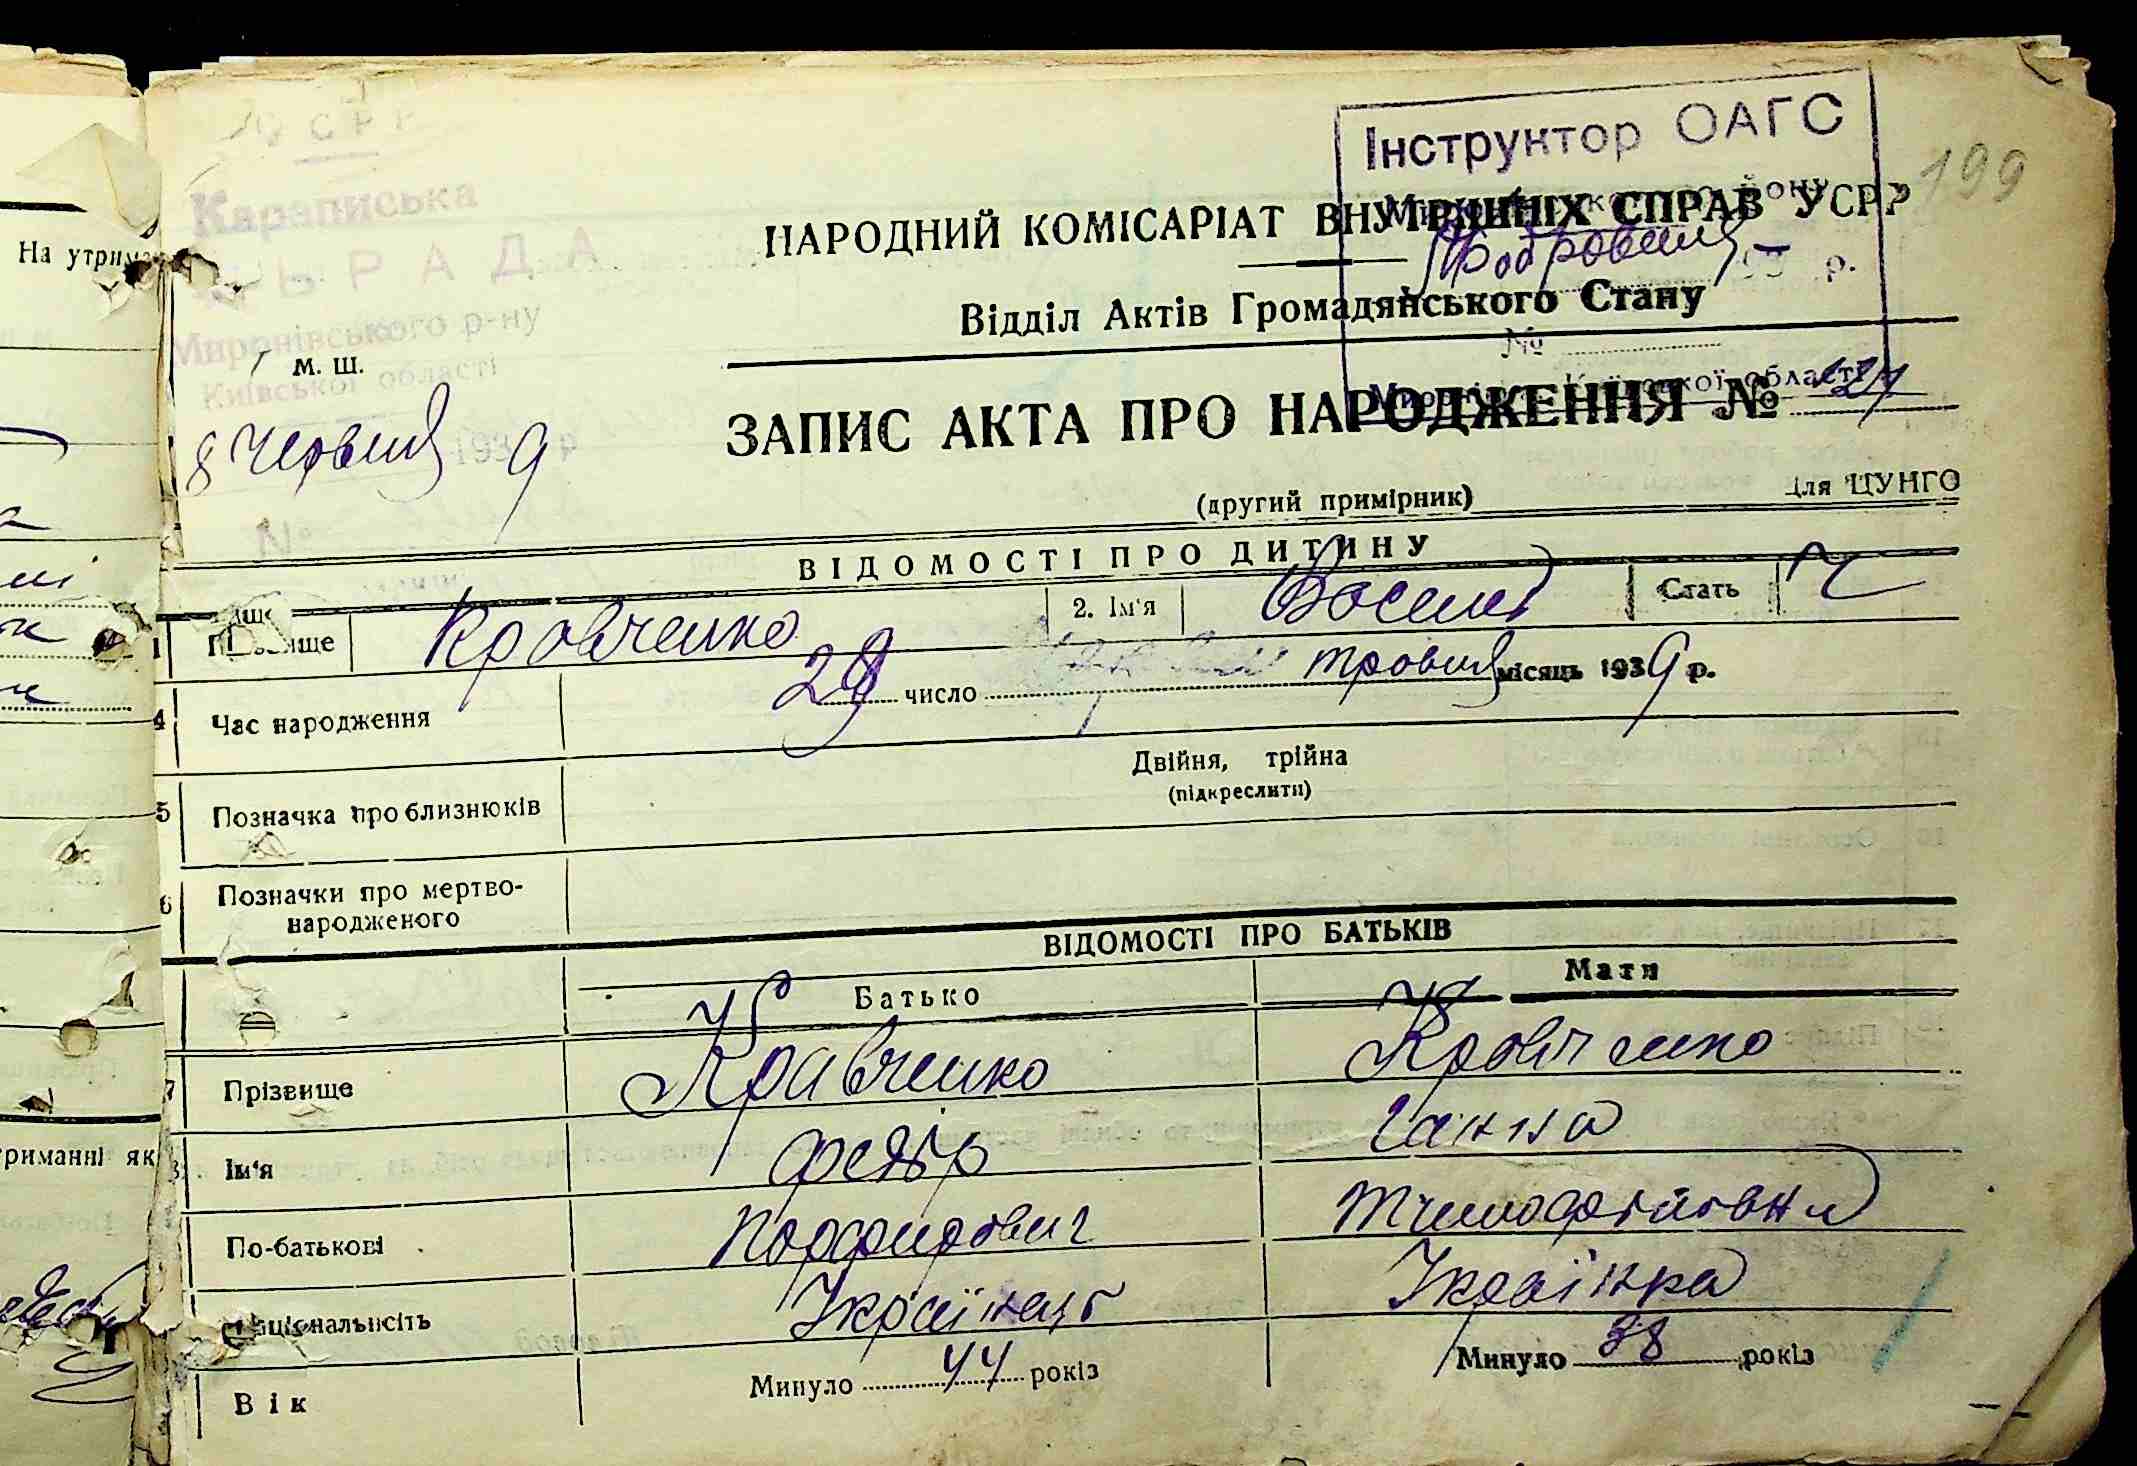 УСРР
Караписька
РАДА
Миронівського р-ну
Київської області
М. Ш.
8 Червня 1939 р
№
Інструктор ОАГС
199
НАРОДНИЙ КОМІСАРІАТ ВНУТРІШНІХ СПРАВ УСРР
193 р.
Відділ Актів Громадянського Стану
№
Київської області
ЗАПИС АКТА ПРО НАРОДЖЕННЯ №
(другий примірник)
Для ЦУНГО
ВІДОМОСТІ ПРО ДИТИНУ
1 Прізвище Кравченко 2. Ім'я Василь Стать Ч
4 Час народження 28 число травня місяць 1939 р.
5 Позначка про близнюків Двійня, трійна
(підкреслити)
6 Позначки про мертво-
народженого
ВІДОМОСТІ ПРО БАТЬКІВ
Батько Мати
7 Прізвище Кравченко Кравченко
8 Ім'я Федір Ганна
По-батькові Порфирович Тимофіївна
Національність Українець Українка
Вік Минуло 44 років Минуло 38 років
На утрим
риманні як